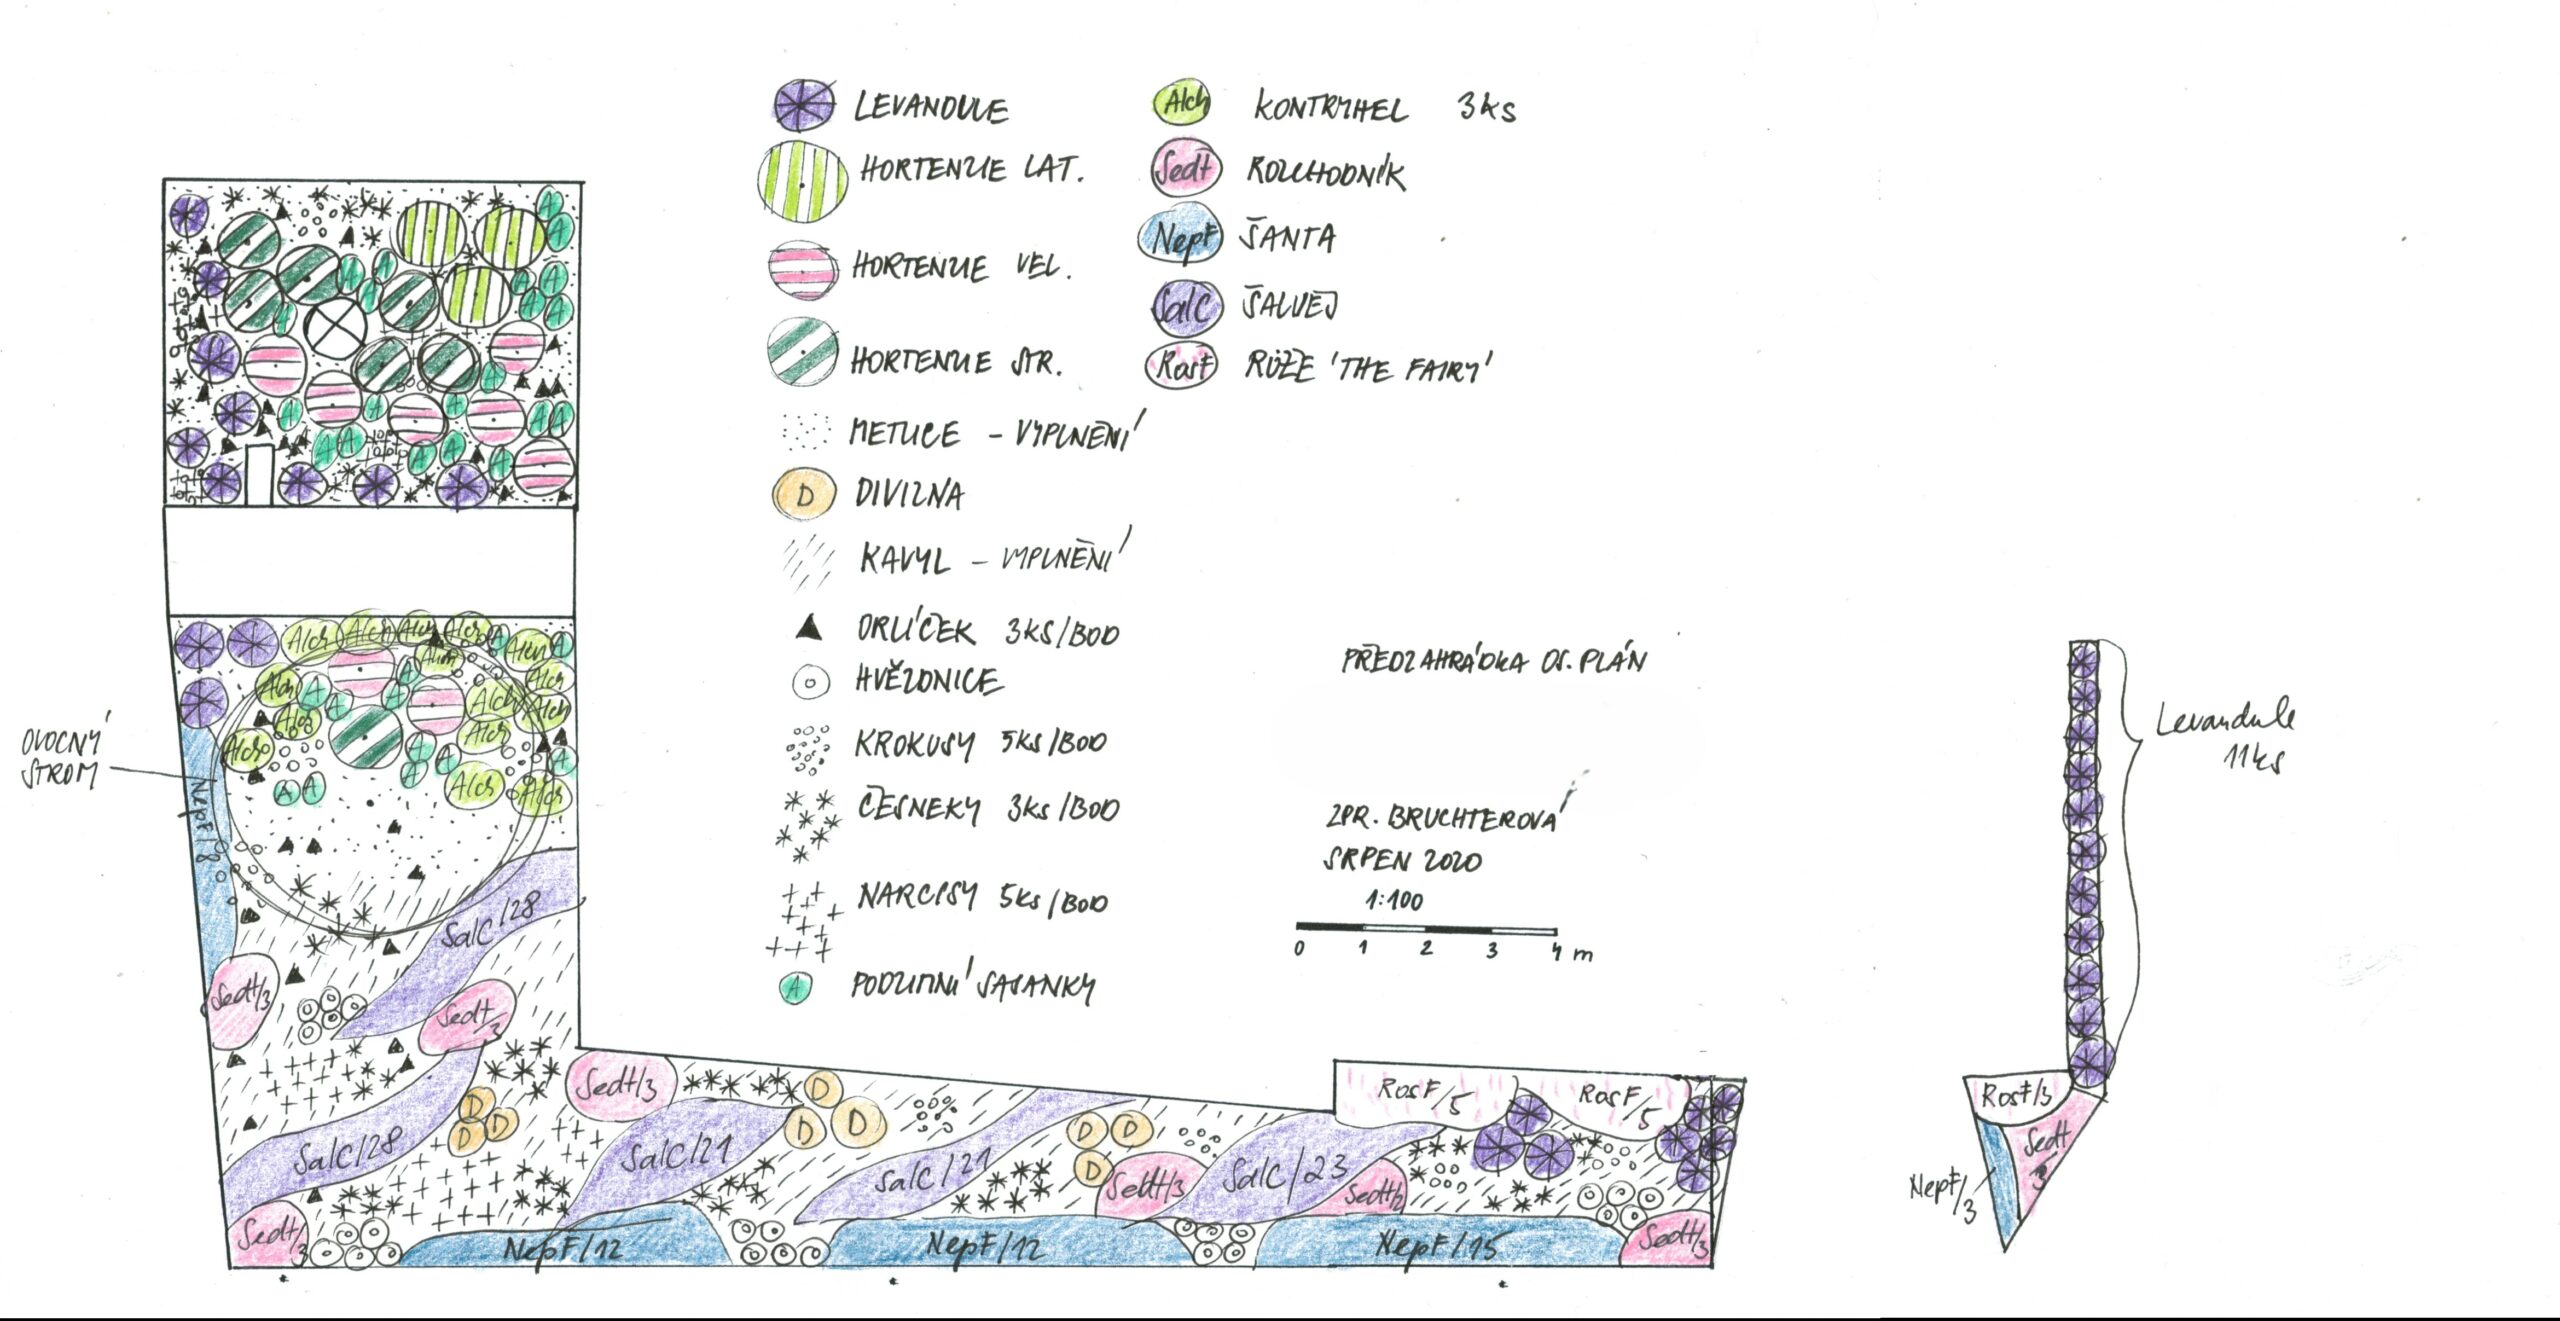 LEVANDULE
HORTENZIE LAT.
HORTENZIE VEL.
HORTENZIE STR.
METLICE - VYPLNĚNÍ
D DIVIZNA
KAVYL - VYPLNĚNÍ
ORLÍČEK 3KS/BOD
HVĚZDNICE
KROKUSY 5KS/BOD
ČESNEKY 3KS/BOD
NARCISY 5KS/BOD
A PODZIMNÍ SASANKY
Alch KONTRYHEL 3KS
Sedt ROZCHODNÍK
NepF ŠANTA
SalC ŠALVĚJ
RosF RŮŽE 'THE FAIRY'
PŘEDZAHRÁDKA OS. PLÁN
ZPR. BRUCHTEROVÁ
SRPEN 2020
1:100
0 1 2 3 4 m
OVOCNÝ
STROM
Alch Alch Alch Alch
Alch
Alch
Alch
Alch
Alch
Alch
Alch
Alch
Alch
Alch
Alch
NepF/8
SalC/28
Sedt/3
Sedt/3
SalC/28
Sedt/3
D D D
Sedt/3
SalC/21
D D D
SalC/21
D D D
Sedt/3
SalC/23
Sedt/2
RosF/5
RosF/5
NepF/12
NepF/12
NepF/15
Sedt/3
Levandule
11ks
RosF/3
Sedt
3
NepF/3